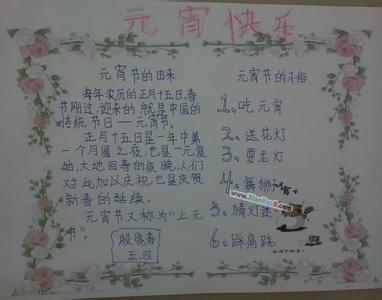 元宵快乐
元宵节的由来
每年农历的正月十五日,春
节刚过,迎来的,就是中国的
传统节日——元宵节。
正月十五日是一年中第
一个月圆之夜,也是一元复
始,大地回春的夜晚,人们
对此加以庆祝,也是庆贺
新春的延续。
元宵节又称为“上元
节”
殷晓春
五.四
元宵节的习俗
1、吃元宵
2、送花灯
3、耍龙灯
4、舞狮
5、猜灯迷
6、踩高跷